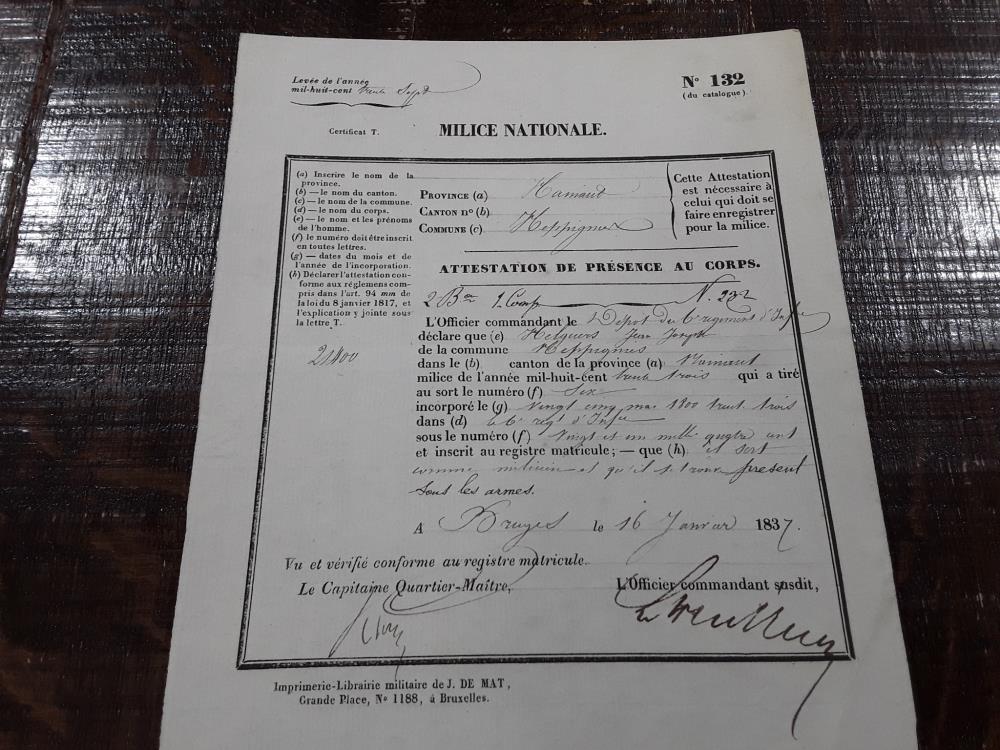 Levée de l'année
mil-huit-cent trente Sept
N° 132
(du catalogue)
Certificat T.
MILICE NATIONALE.
(a) Inscrire le nom de la
province.
(b) — le nom du canton.
(c) — le nom de la commune.
(d) — le nom du corps.
(e) — le nom et les prénoms
de l'homme.
(f) le numéro doit être inscrit
en toutes lettres.
(g) — dates du mois et de
l'année de l'incorporation.
(h) Déclarer l'attestation con-
forme aux réglemens com-
pris dans l'art. 94 mm de
la loi du 8 janvier 1817, et
l'explication y jointe sous
la lettre T.
21400
PROVINCE (a) Hainaut
CANTON n° (b)
COMMUNE (c) Heppignies
Cette Attestation
est nécessaire à
celui qui doit se
faire enregistrer
pour la milice.
ATTESTATION DE PRÉSENCE AU CORPS.
2 Bon N. 232
L'Officier commandant le Dépot du 6 regiment d'Infie
déclare que (e) Jean Joseph
de la commune Heppignies
dans le (b) canton de la province (a) Hainaut
milice de l'année mil-huit-cent trente trois qui a tiré
au sort le numéro (f) Six
incorporé le (g) Vingt cinq mai 1800 trente trois
dans (d) le 6e regt d'Infie
sous le numéro (f) Vingt et un mille quatre cent
et inscrit au registre matricule; — que (h) il sert
comme milicien et qu'il se trouve présent
sous les armes.
A Bruges le 16 Janvier 1837.
Vu et vérifié conforme au registre matricule.
Le Capitaine Quartier-Maître,
L'Officier commandant susdit,
Imprimerie-Librairie militaire de J. DE MAT,
Grande Place, N° 1188, à Bruxelles.